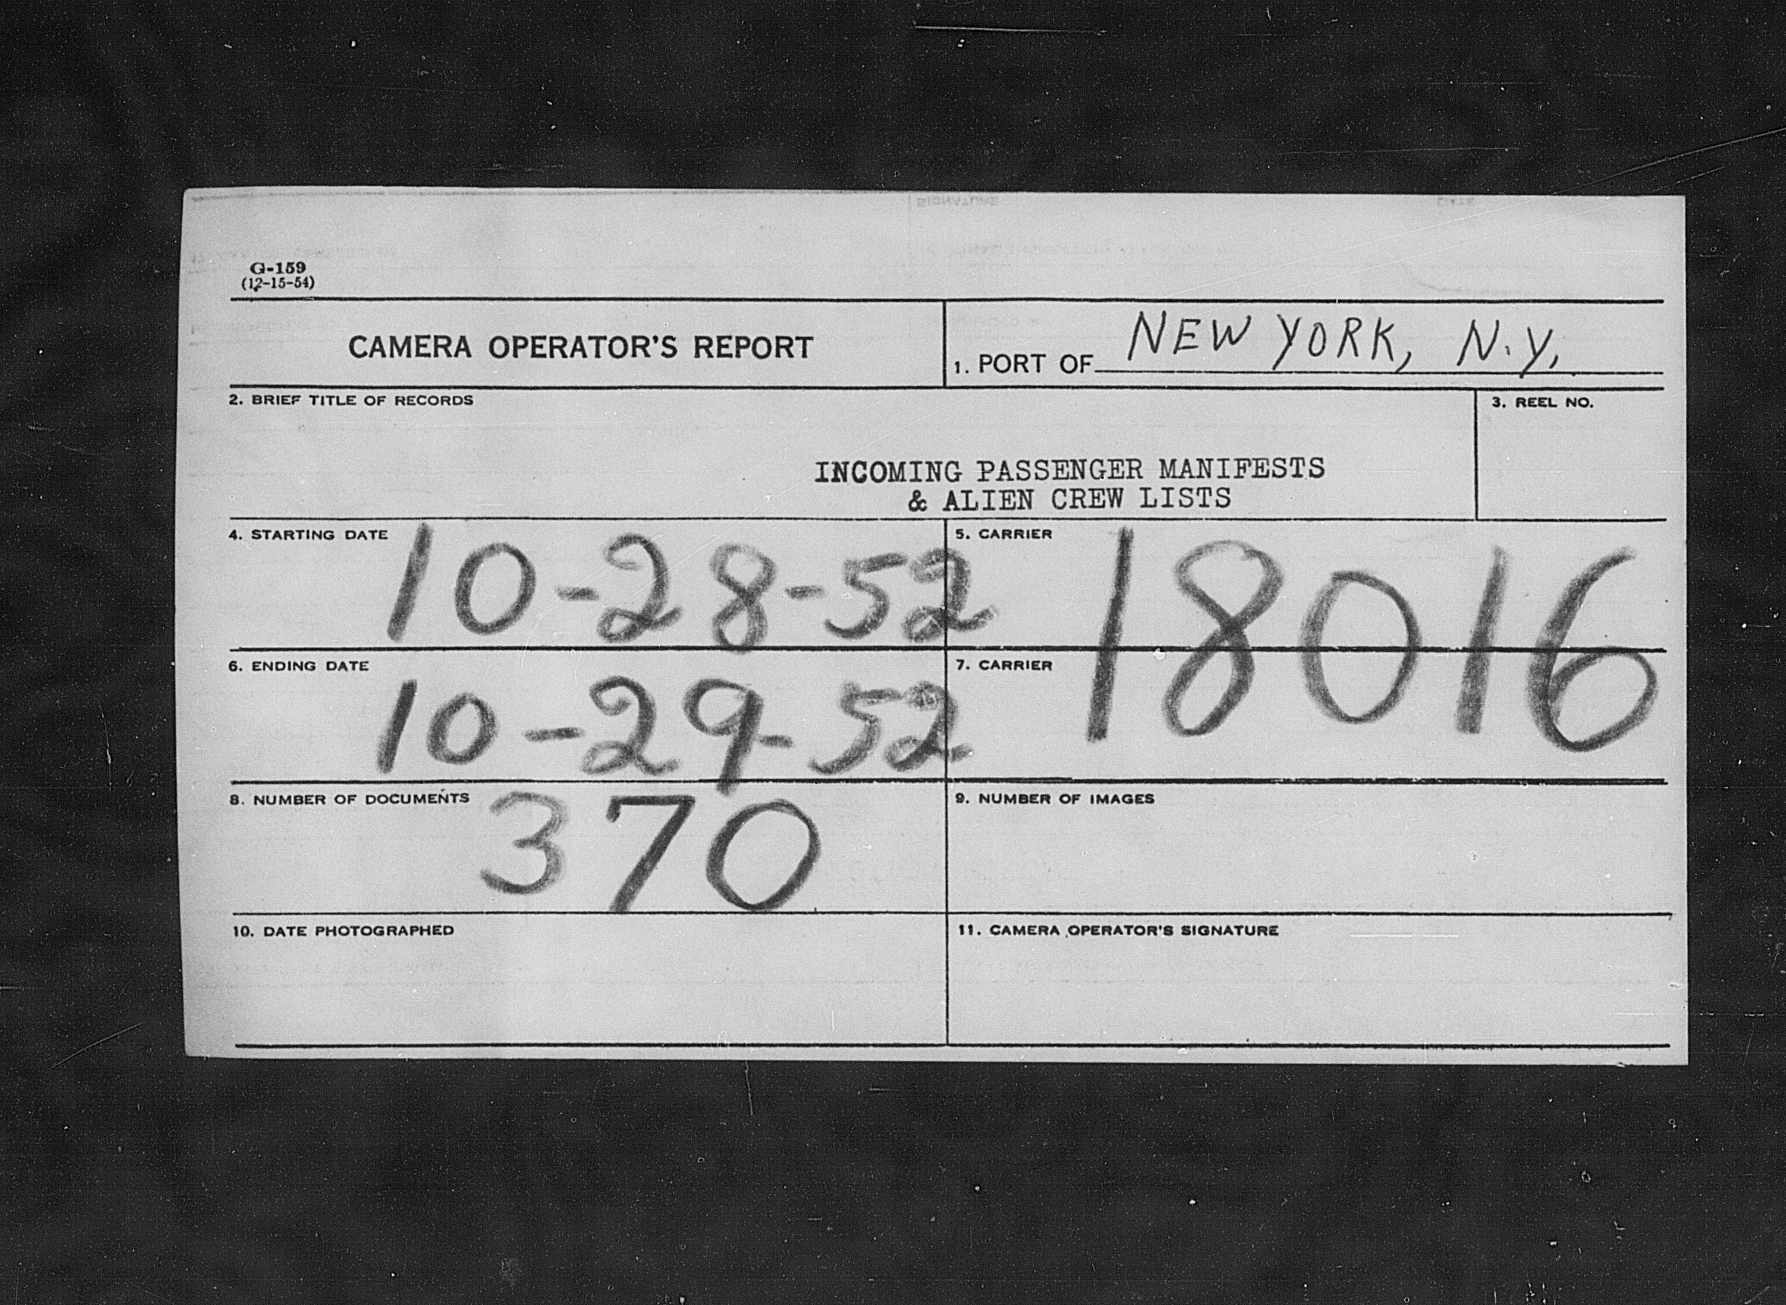 G-159
(12-15-54)
CAMERA OPERATOR'S REPORT
1. PORT OF NEW YORK, N.Y.
2. BRIEF TITLE OF RECORDS
3. REEL NO.
INCOMING PASSENGER MANIFESTS
& ALIEN CREW LISTS
4. STARTING DATE 10-28-52
5. CARRIER 18016
6. ENDING DATE 10-29-52
7. CARRIER
8. NUMBER OF DOCUMENTS 370
9. NUMBER OF IMAGES
10. DATE PHOTOGRAPHED
11. CAMERA OPERATOR'S SIGNATURE